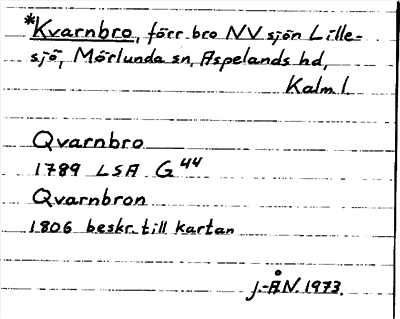 *Kvarnbro, förr bro NV sjön Lille-
sjö, Mörlunda sn, Aspelands hd,
Kalm. l.
Qvarnbro
1789 LSA G 44
Qvarnbron
1806 beskr. till kartan
J.-Å N. 1973.